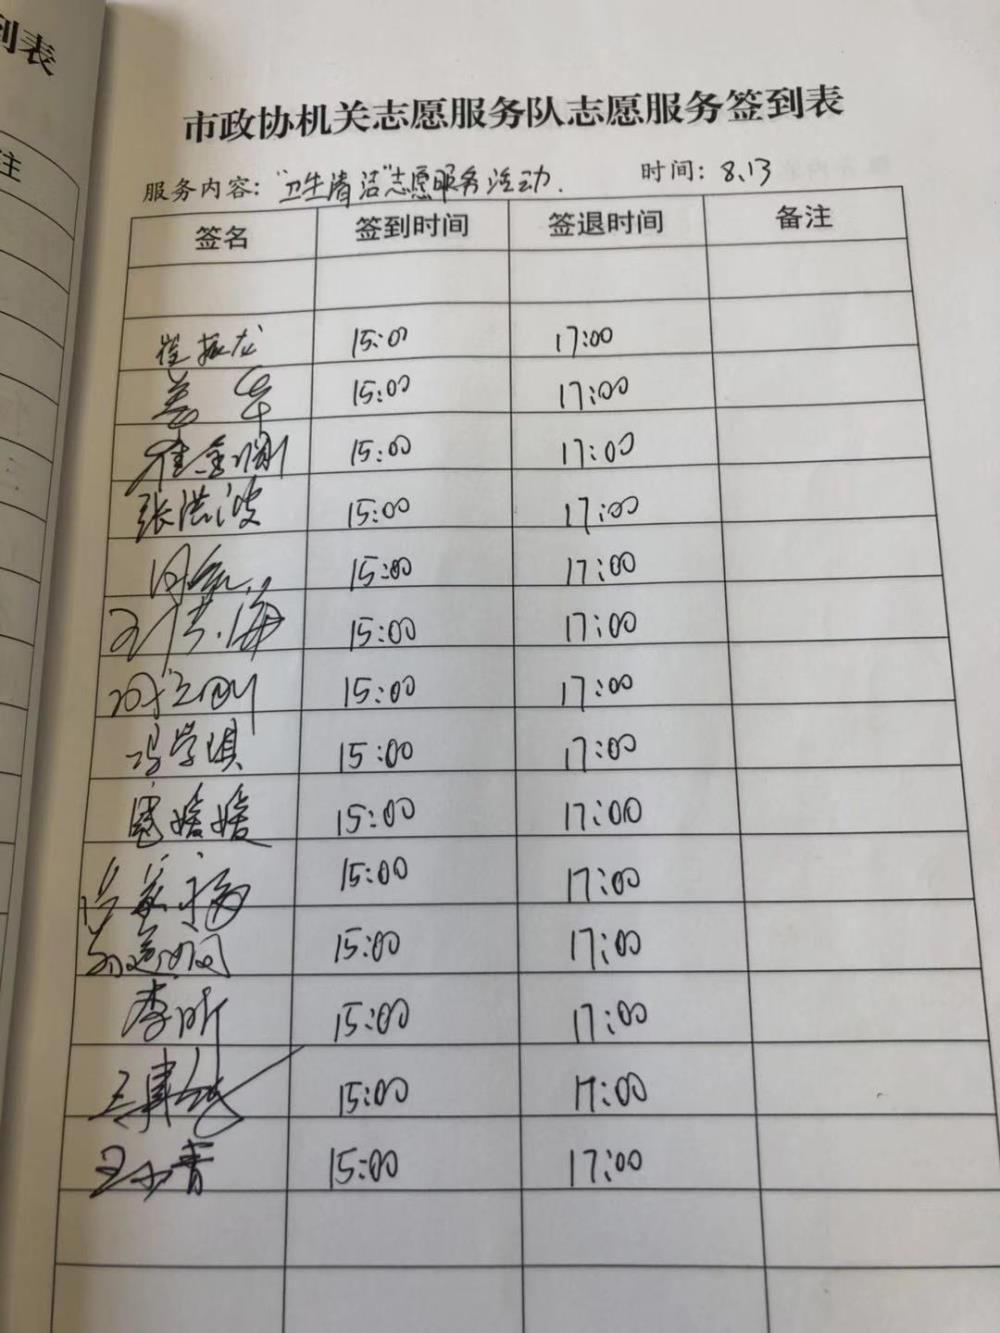 到表
注
市政协机关志愿服务队志愿服务签到表
服务内容：“卫生清洁”志愿服务活动. 时间：8.13
签名 签到时间 签退时间 备注
崔振龙 15:00 17:00
姜华 15:00 17:00
崔金刚 15:00 17:00
张洪波 15:00 17:00
15:00 17:00
15:00 17:00
15:00 17:00
冯学琪 15:00 17:00
媛媛 15:00 17:00
15:00 17:00
15:00 17:00
李昕 15:00 17:00
15:00 17:00
王小青 15:00 17:00